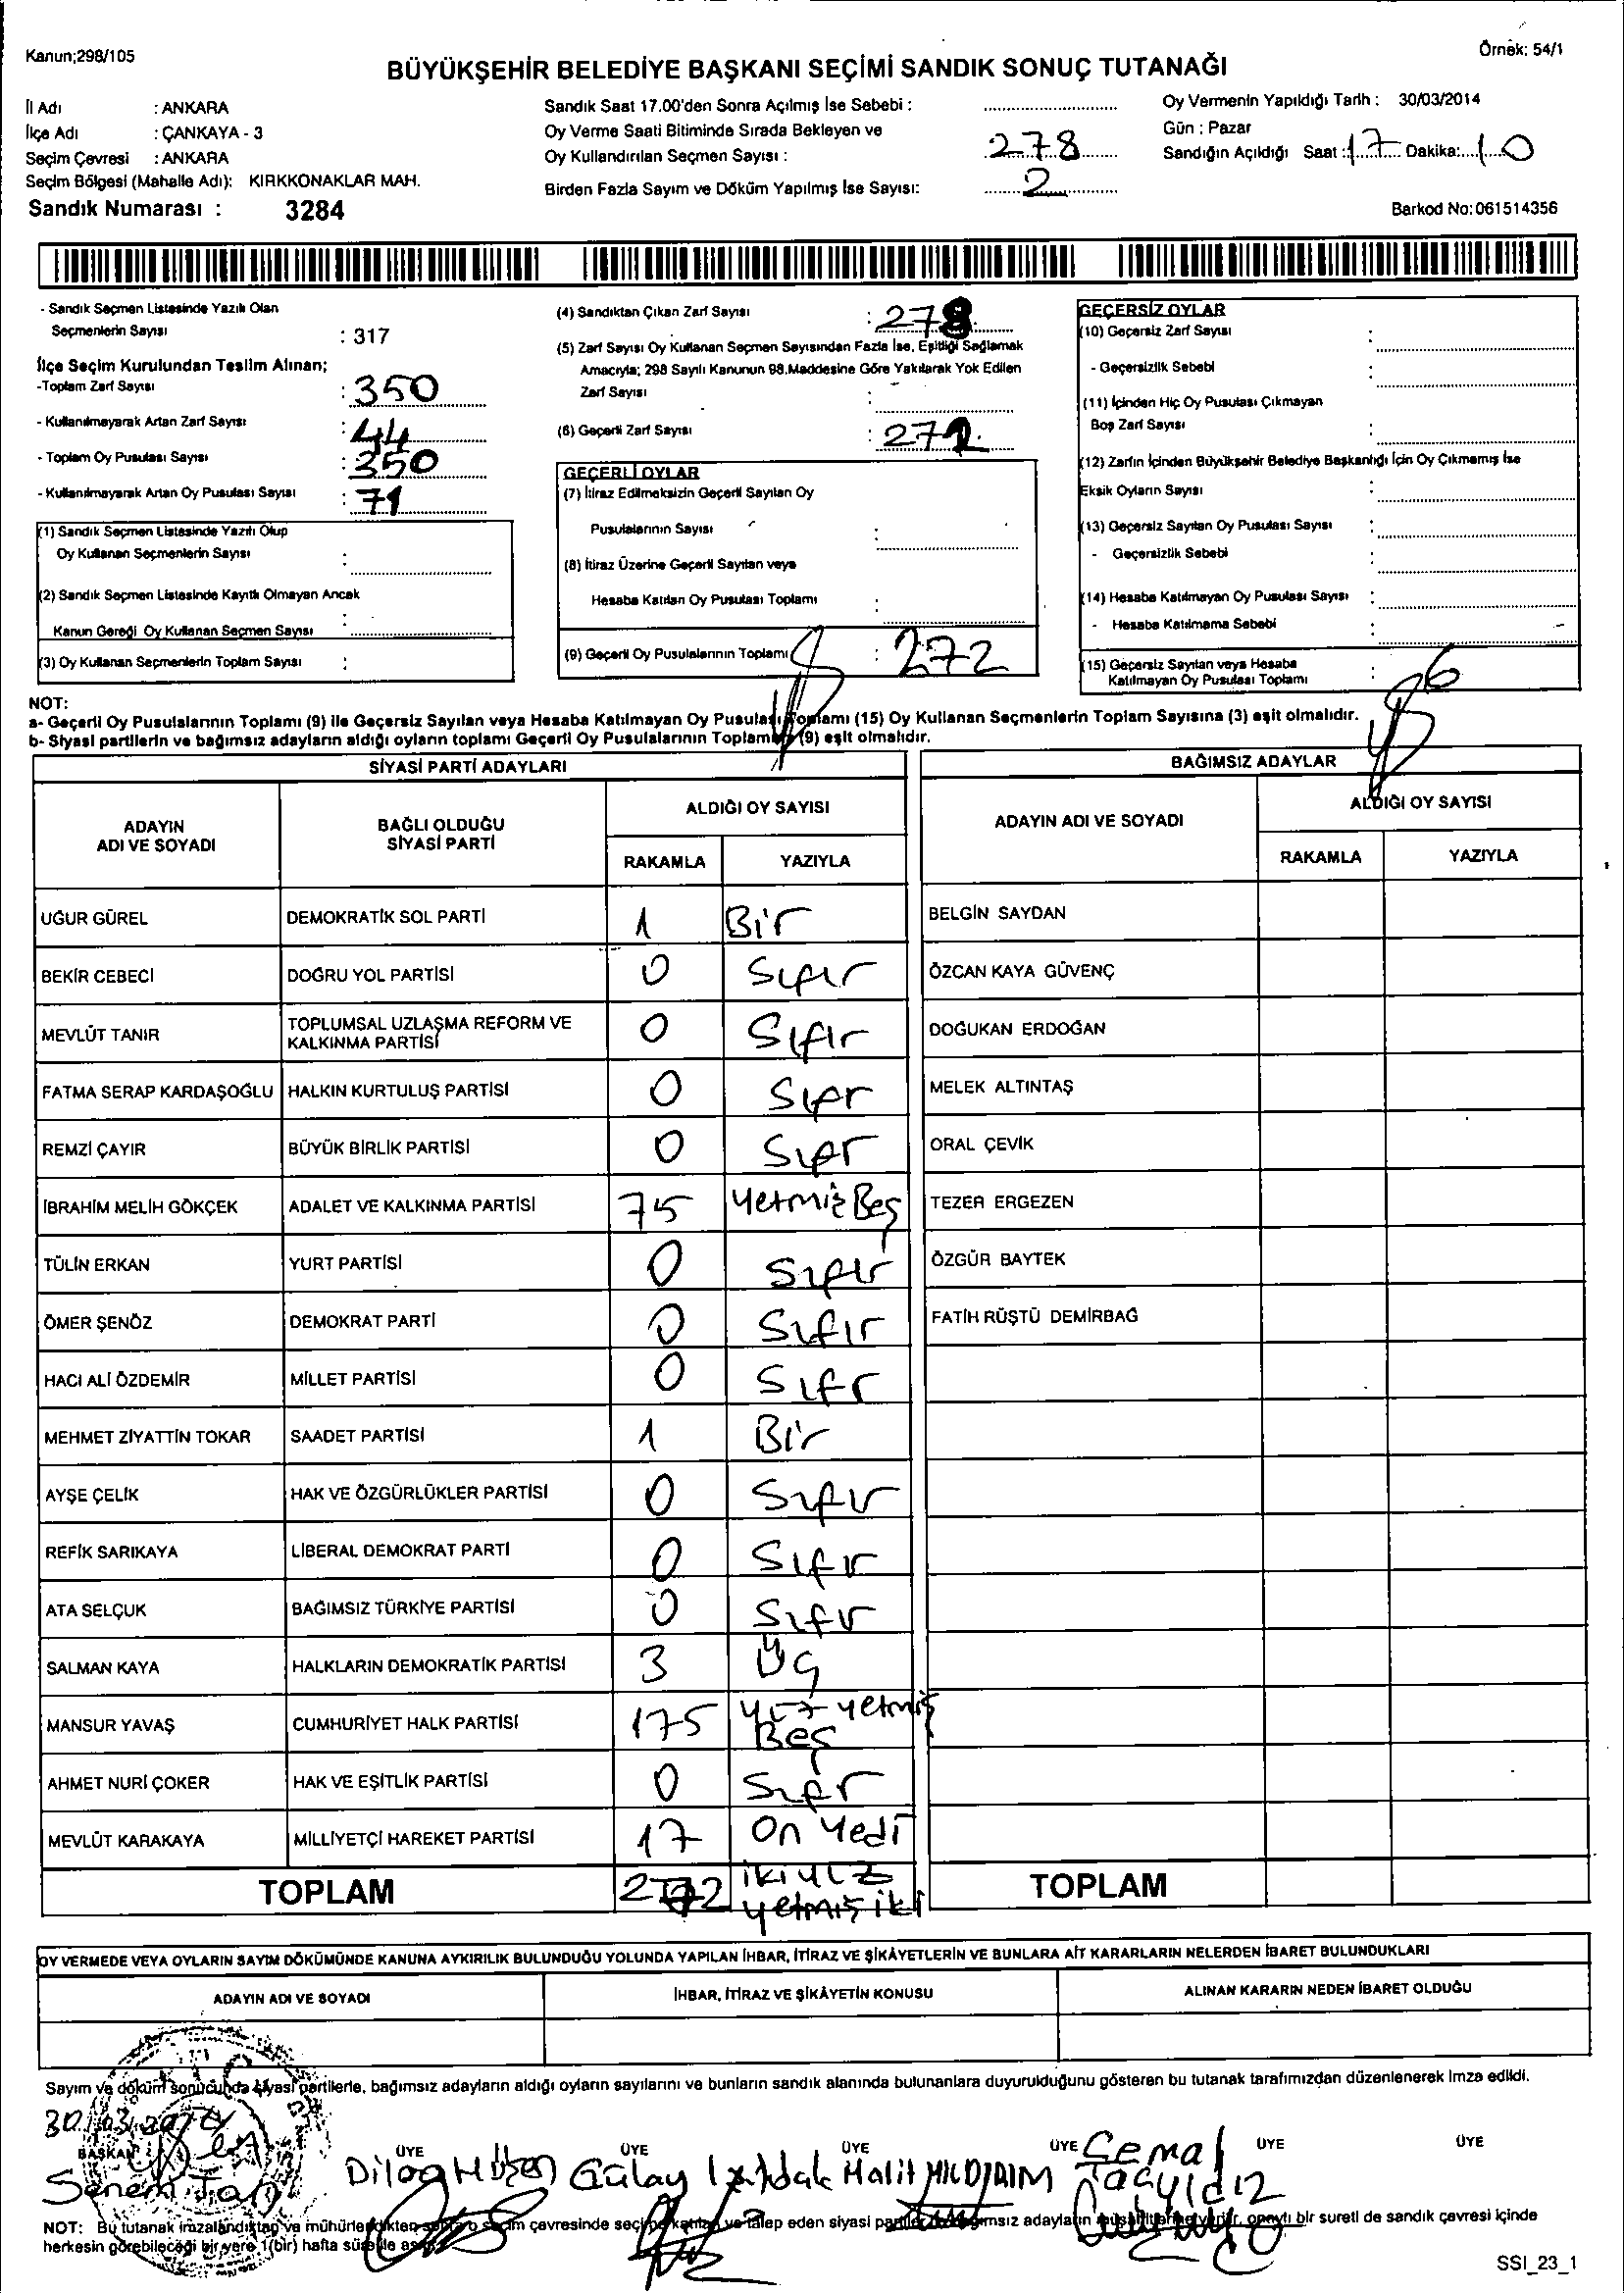 Kanun;298/105
Örnek: 54/1
BÜYÜKŞEHİR BELEDİYE BAŞKANI SEÇİMİ SANDIK SONUÇ TUTANAĞI
İl Adı : ANKARA
İlçe Adı : ÇANKAYA - 3
Seçim Çevresi : ANKARA
Seçim Bölgesi (Mahalle Adı): KIRKKONAKLAR MAH.
Sandık Numarası : 3284
Sandık Saat 17.00'den Sonra Açılmış İse Sebebi :
Oy Verme Saati Bitiminde Sırada Bekleyen ve
Oy Kullandırılan Seçmen Sayısı : 278
Birden Fazla Sayım ve Döküm Yapılmış İse Sayısı: 2
Oy Vermenin Yapıldığı Tarih : 30/03/2014
Gün : Pazar
Sandığın Açıldığı Saat : 17 Dakika: 10
Barkod No:061514356
- Sandık Seçmen Listesinde Yazılı Olan
Seçmenlerin Sayısı : 317
İlçe Seçim Kurulundan Teslim Alınan;
-Toplam Zarf Sayısı : 350
- Kullanılmayarak Artan Zarf Sayısı : 44
- Toplam Oy Pusulası Sayısı : 350
- Kullanılmayarak Artan Oy Pusulası Sayısı : 71
(1) Sandık Seçmen Listesinde Yazılı Olup
Oy Kullanan Seçmenlerin Sayısı :
(2) Sandık Seçmen Listesinde Kayıtlı Olmayan Ancak
Kanun Gereği Oy Kullanan Seçmen Sayısı :
(3) Oy Kullanan Seçmenlerin Toplam Sayısı :
(4) Sandıktan Çıkan Zarf Sayısı : 278
(5) Zarf Sayısı Oy Kullanan Seçmen Sayısından Fazla İse, Eşitliği Sağlamak
Amacıyla; 298 Sayılı Kanunun 98.Maddesine Göre Yakılarak Yok Edilen
Zarf Sayısı :
(6) Geçerli Zarf Sayısı : 272
GEÇERLİ OYLAR
(7) İtiraz Edilmeksizin Geçerli Sayılan Oy
Pusulalarının Sayısı :
(8) İtiraz Üzerine Geçerli Sayılan veya
Hesaba Katılan Oy Pusulası Toplamı :
(9) Geçerli Oy Pusulalarının Toplamı : 272
GEÇERSİZ OYLAR
(10) Geçersiz Zarf Sayısı :
- Geçersizlik Sebebi :
(11) İçinden Hiç Oy Pusulası Çıkmayan
Boş Zarf Sayısı :
(12) Zarfın İçinden Büyükşehir Belediye Başkanlığı İçin Oy Çıkmamış İse
Eksik Oyların Sayısı :
(13) Geçersiz Sayılan Oy Pusulası Sayısı :
- Geçersizlik Sebebi :
(14) Hesaba Katılmayan Oy Pusulası Sayısı :
- Hesaba Katılmama Sebebi :
(15) Geçersiz Sayılan veya Hesaba
Katılmayan Oy Pusulası Toplamı : 6
NOT:
a- Geçerli Oy Pusulalarının Toplamı (9) ile Geçersiz Sayılan veya Hesaba Katılmayan Oy Pusulası Toplamı (15) Oy Kullanan Seçmenlerin Toplam Sayısına (3) eşit olmalıdır.
b- Siyasi partilerin ve bağımsız adayların aldığı oyların toplamı Geçerli Oy Pusulalarının Toplamına (9) eşit olmalıdır.
SİYASİ PARTİ ADAYLARI
ADAYIN ADI VE SOYADI
BAĞLI OLDUĞU SİYASİ PARTİ
ALDIĞI OY SAYISI
RAKAMLA YAZIYLA
UĞUR GÜREL DEMOKRATİK SOL PARTİ 1 Bir
BEKİR CEBECİ DOĞRU YOL PARTİSİ 0 Sıfır
MEVLÜT TANIR TOPLUMSAL UZLAŞMA REFORM VE KALKINMA PARTİSİ 0 Sıfır
FATMA SERAP KARDAŞOĞLU HALKIN KURTULUŞ PARTİSİ 0 Sıfr
REMZİ ÇAYIR BÜYÜK BİRLİK PARTİSİ 0 Sıfr
İBRAHİM MELİH GÖKÇEK ADALET VE KALKINMA PARTİSİ 75 YetmişBeş
TÜLİN ERKAN YURT PARTİSİ 0 Sıfır
ÖMER ŞENÖZ DEMOKRAT PARTİ 0 Sıfır
HACI ALİ ÖZDEMİR MİLLET PARTİSİ 0 Sıfr
MEHMET ZİYATTİN TOKAR SAADET PARTİSİ 1 Bir
AYŞE ÇELİK HAK VE ÖZGÜRLÜKLER PARTİSİ 0 Sıfır
REFİK SARIKAYA LİBERAL DEMOKRAT PARTİ 0 Sıfır
ATA SELÇUK BAĞIMSIZ TÜRKİYE PARTİSİ 0 Sıfır
SALMAN KAYA HALKLARIN DEMOKRATİK PARTİSİ 3 Üç
MANSUR YAVAŞ CUMHURİYET HALK PARTİSİ 175 yüz yetmiş Beş
AHMET NURİ ÇOKER HAK VE EŞİTLİK PARTİSİ 0 Sıfr
MEVLÜT KARAKAYA MİLLİYETÇİ HAREKET PARTİSİ 17 On Yedi
TOPLAM 272 ikiyüz yetmiş iki
BAĞIMSIZ ADAYLAR
ADAYIN ADI VE SOYADI
ALDIĞI OY SAYISI
RAKAMLA YAZIYLA
BELGİN SAYDAN
ÖZCAN KAYA GÜVENÇ
DOĞUKAN ERDOĞAN
MELEK ALTINTAŞ
ORAL ÇEVİK
TEZER ERGEZEN
ÖZGÜR BAYTEK
FATİH RÜŞTÜ DEMİRBAĞ
TOPLAM
OY VERMEDE VEYA OYLARIN SAYIM DÖKÜMÜNDE KANUNA AYKIRILIK BULUNDUĞU YOLUNDA YAPILAN İHBAR, İTİRAZ VE ŞİKÂYETLERİN VE BUNLARA AİT KARARLARIN NELERDEN İBARET BULUNDUKLARI
ADAYIN ADI VE SOYADI
İHBAR, İTİRAZ VE ŞİKÂYETİN KONUSU
ALINAN KARARIN NEDEN İBARET OLDUĞU
Sayım ve döküm sonucunda siyasi partilerle, bağımsız adayların aldığı oyların sayılarını ve bunların sandık alanında bulunanlara duyurulduğunu gösteren bu tutanak tarafımızdan düzenlenerek imza edildi.
30.03.2014
BAŞKAN ÜYE ÜYE ÜYE ÜYE ÜYE ÜYE
Senem
Gülay
Halit YILDIRIM
Cemal
NOT: Bu tutanak imzalandıktan ve mühürlendikten sonra o seçim çevresinde seçime katılan ve talep eden siyasi partiler ve bağımsız adayların müşahitlerine verilir, onaylı bir sureti de sandık çevresi içinde
herkesin görebileceği bir yere 1(bir) hafta süreyle asılır.
SSI_23_1